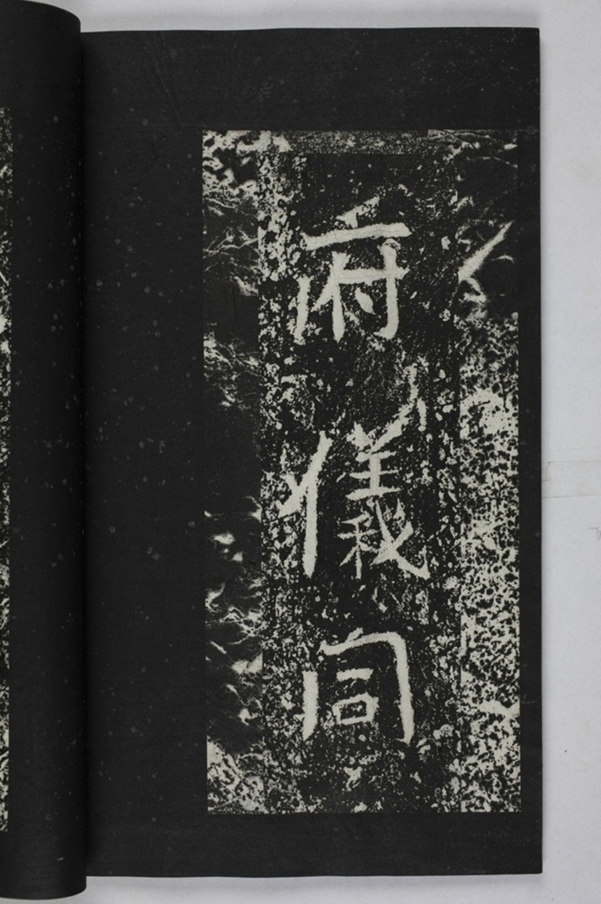 府儀同